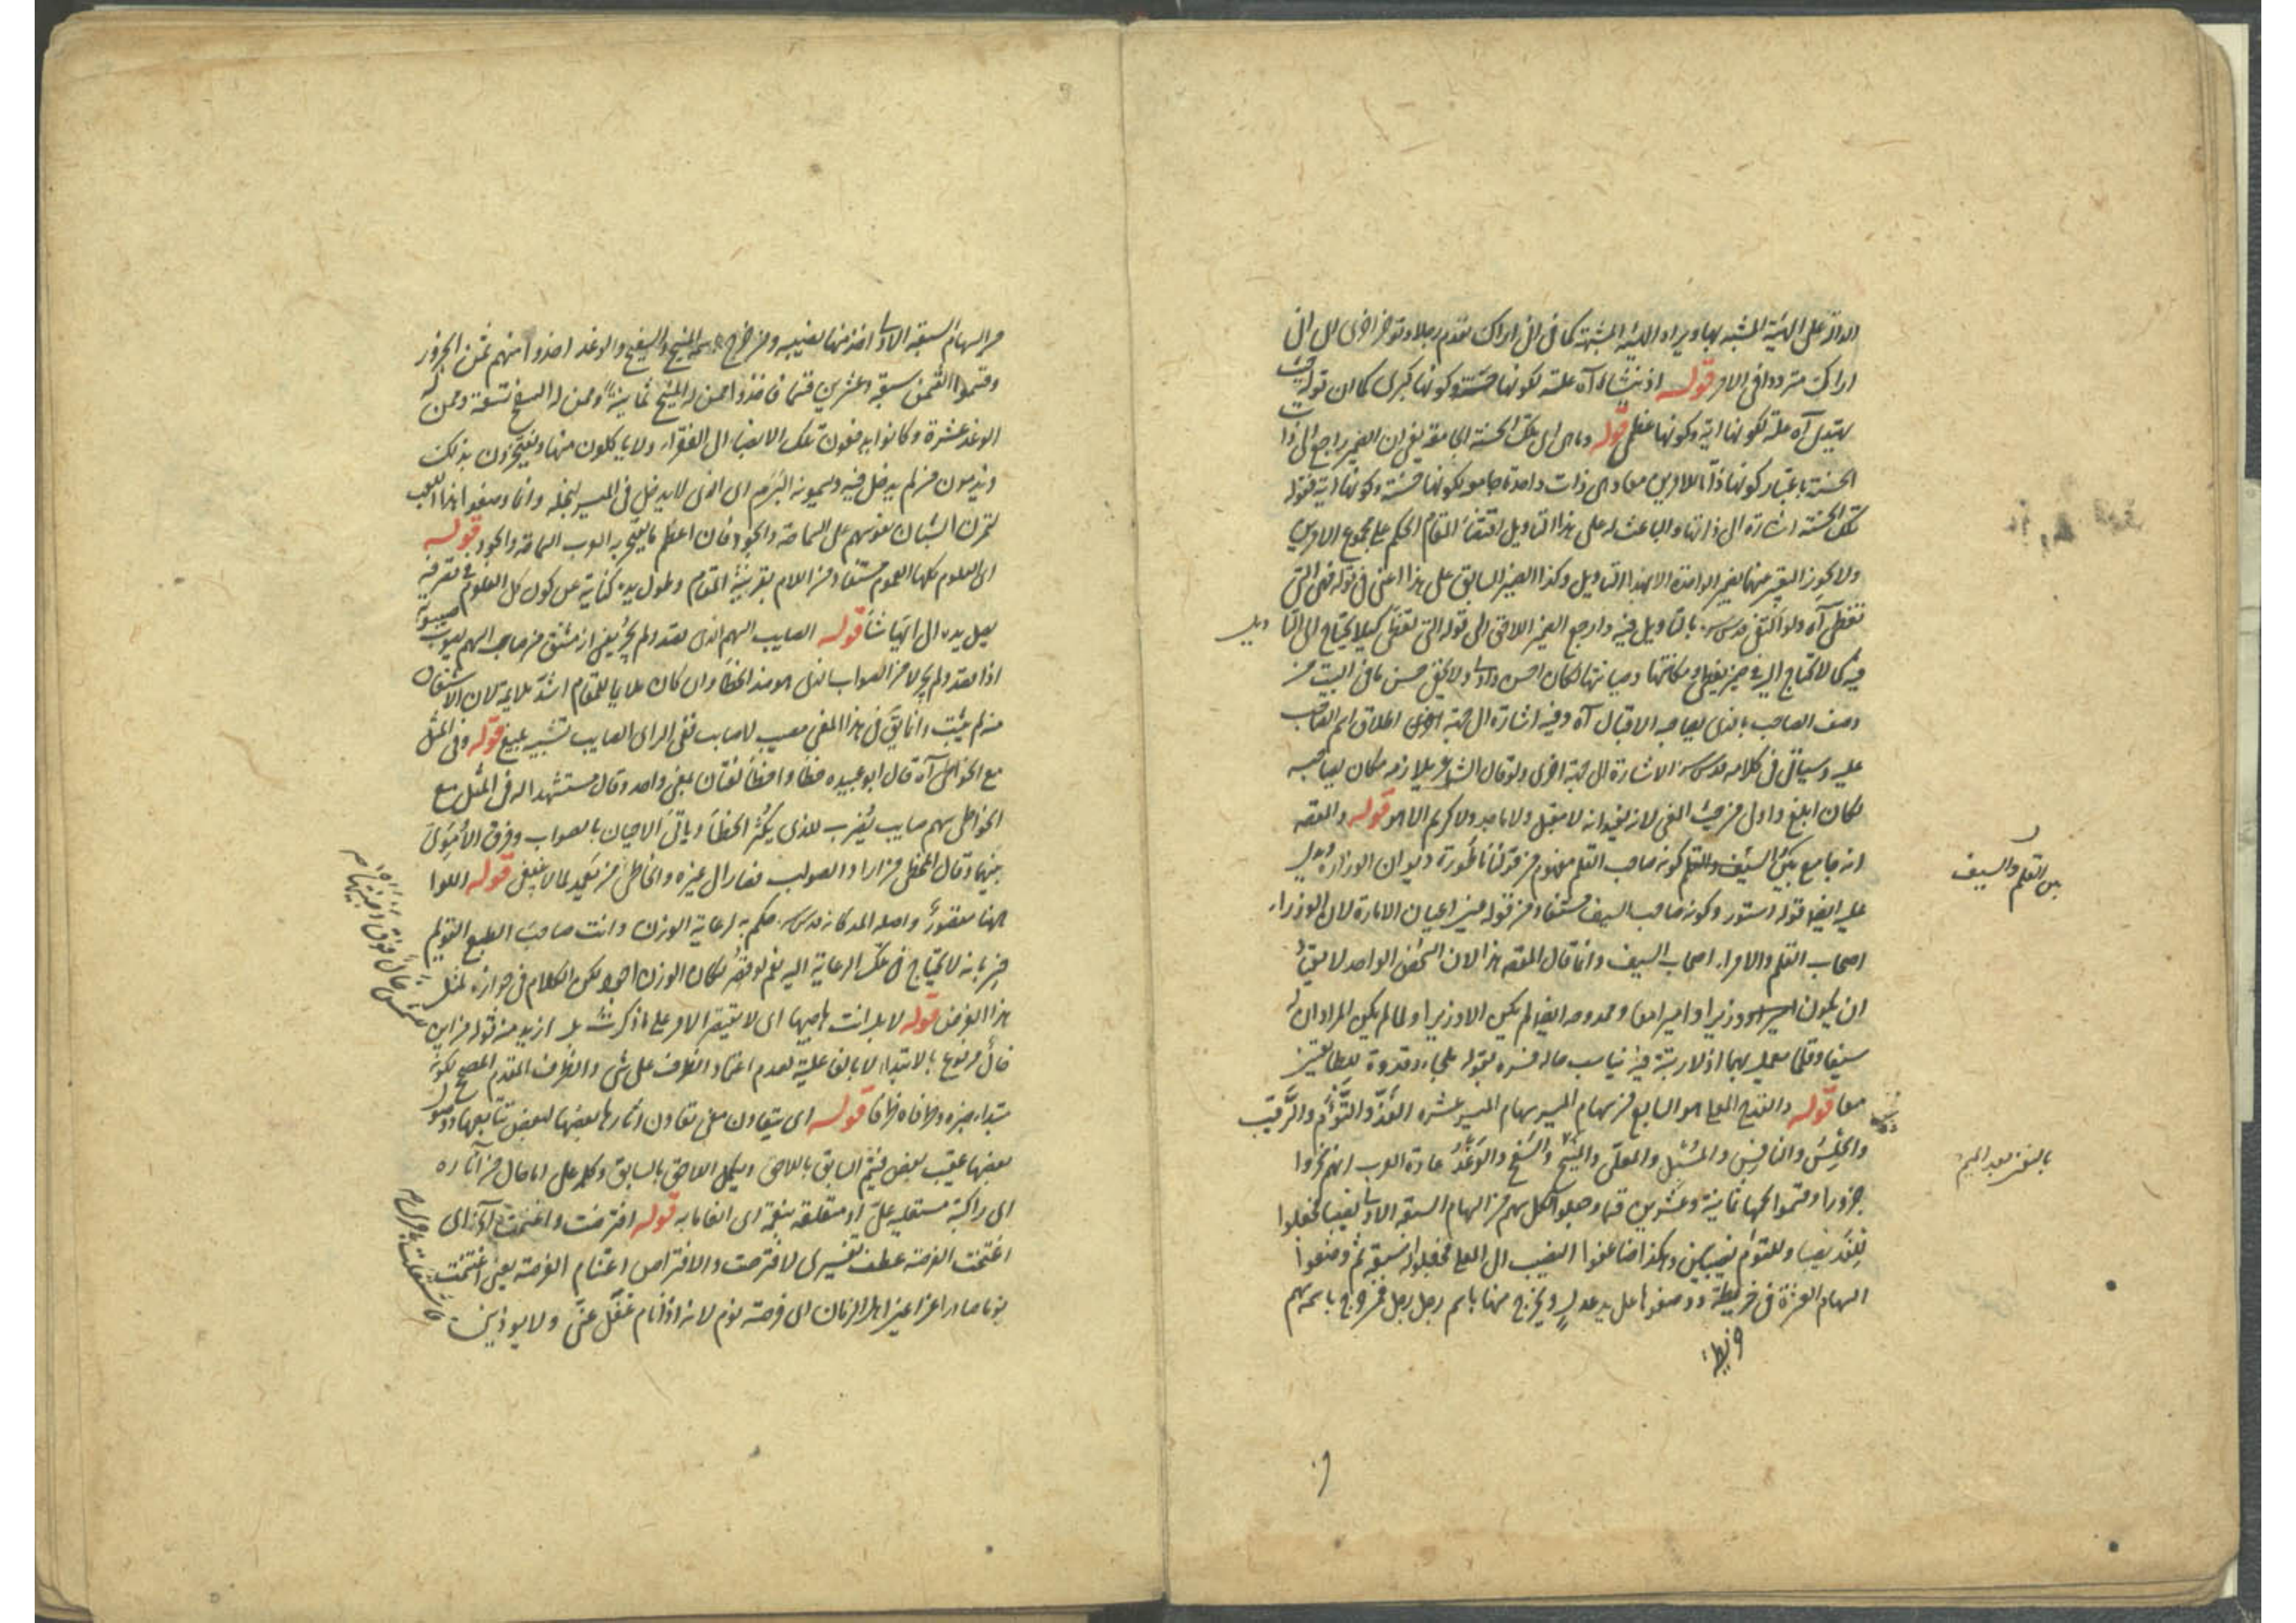 الدالة على الهيئة المشبه بها ويراد الهيئة المشبهة كما في اني اراك تقدم رجلا وتؤخر اخرى اى انى
اراك مترددا فى الامر قوله اذ بشاراه علة لكونها حسنة وكونها كبرى كما ان قوله حيث
يهتدى آه علة لكونها آية وكونها عظمى قوله وما هى الى تلك الحسنة الجامعة يعنى ان الضمير راجع الى ذات
الحسنة باعتبار كونها ذاتا للامرين معا وهى ذات واحدة جامعة لكونها حسنة وكونها آية فقوله
تلك الحسنة اشارة الى ذاتها والباعث له على هذا التاويل اقتضاء المقام الحكم على مجموع الامرين
ولا يجوز التعبير عنها بضمير الواحدة الا بهذا التاويل وكذا الضمير السابق على هذا اعنى فى قوله فهى التى
تغطى آه ولو اكتفى قدس سره بالتاويل فيه وارجع الضمير اللاحق الى قوله التى تغطى كيلا يحتاج الى التاويل
فيه كما لا يحتاج اليه فى ضمير يغطى مكانتها وصيانتها لكان احسن واولى ولا يخفى حسن ما فى البيت من
وصف الصاحب بالذى يصاحبه الاقبال آه وفيه اشارة الى جهة اخرى اطلاق اسم الصاحب
عليه وسياتى فى كلامه قدس سره الاشارة الى جهة اخرى ولو قال الشاعر يلازمه مكان يصاحبه
لكان ابلغ واولى من حيث المعنى لانه يفيد انه لا مقبل ولا ماجد ولا كريم الا هو قوله والمقصد
انه جامع بين السيف والقلم كونه صاحب القلم مفهوم من قولنا ناظورة ديوان الوزارة ويدل
عليه ايضا قوله دستور وكونه صاحب السيف مستفاد من قوله عين اعيان الامارة لان الوزراء
اصحاب القلم والامراء اصحاب السيف وانما قال المقصد هذا لان الشخص الواحد لا يقى
ان يكون وزيرا واميرا معا وممدوحه ايضا لم يكن الا وزيرا ولما لم يكن المراد ان له
سيفا وقلما يعمل بهما اذ لا رتبة فيه يناسب حاله فسره بقوله ملجاء وقدوة للطائفتين
معا قوله والقدح المعلى هو السابع من سهام الميسر سهام الميسر عشرة الفَذّ والتَّوْأَم والرَّقيب
والحِلْسُ والنافِسُ والمُسْبِل والمعلّى والمَنيح والسَّفيح والوَغْدُ عادة العرب انهم نحروا
جزورا وقسموا لحمها ثمانية وعشرين قسما وجعلوا لكل سهم من السهام السبعة الاولى نصيبا فجعلوا
للفذ نصيبا وللتوأم نصيبين وهكذا ضاعفوا النصيب الى المعلى فجعلوا له سبعة ثم وضعوا
السهام العشرة فى خريطة ووضعوها على يد عدلٍ ويخرج منها باسم رجل رجل فمن خرج باسمه سهم
بين القلم والسيف
من السهام السبعة الاولى اخذ منها نصيبه ومن خرج باسمه المنيح والسفيح والوغد اخذوا منهم ثمن الجزور
وقسموا الثمن سبعة وعشرين قسما فاخذوا ممن له المنيح ثمانيةً وممن له السفيح تسعة وممن له
الوغد عشرة وكانوا يدفعون تلك الانصباء الى الفقراء ولا ياكلون منها ويفتخرون بذلك
ويذمون من لم يدخل فيه ويسمونه البَرَم اى الذى لا يدخل فى الميسر لبخله وانما وضعوا هذا اللعب
لتمرن الشبان نفوسهم على السماحة والجود فان اعظم ما يفتخر به العرب السماحة والجود قوله
اى العلوم كلها العموم مستفاد من اللام بقرينة المقام وطول يده كناية عن كون كل العلوم فى تصرفه
يصل يده الى ايها شاء قوله الصايب السهم الذى يقصد ولم يجز يعنى انه مشتق من صاب السهم يصوب صيبوبة
اذا قصد ولم يجز لا من الصواب الذى هو ضد الخطأ وان كان ملايما للمقام اشد ملايمة لان الاشتقاق
منه لم يثبت وانما يقال فى هذا المعنى مصيب لا صايب ففى الراى الصايب تشبيه بليغ قوله وفى المثل
مع الخواطى آه قال ابو عبيده خطأ واخطأ لغتان بمعنى واحد وقال مستشهدا له فى المثل مع
الخواطى سهم صايب يُضرب للذى يكثر الخطأ وياتى الاحيان بالصواب وفرق الاُمَوِىّ
بينهما وقال المخطى من اراد الصواب فصار الى غيره والخاطى من تعمد لما لا ينبغى قوله اللوا
ههنا مقصورٌ واصله المد كانه قدس سره حكم به لرعاية الوزن وانت صاحب الطبع القويم
خبير بانه لا يحتاج فى تلك الرعاية اليه نعم لو قصر لكان الوزن اجود لكن الكلام فى جوازه لمثل
هذا الغرض قوله لا بل انت صاحبها اى لا يقتصر الامر على ما ذكرت بل ازيد منه قوله من اين
خال مرفوع بالابتداء لا بالفاعلية لعدم اعتماد الظرف على شى والظرف المقدم المصحح لكونه
مبتداء خبره قوله اى يتعاون معنى تعاون آثارها بعضها لبعض تتابعها وحصول
بعضها عقيب بعض فيتم السابق باللاحق ويكمل اللاحق بالسابق وكلمة على اما حال من آثاره
اى راكبة مستعلية علىّ او متعلقة بنعمة اى انعامابه قوله افترصت واغتنمت آه اى
اغتنمت الفرصة عطف تفسيرى لافترصت والافتراص اغتنام الفرصة يعنى اغتنمت
نوما صادرا عن اعين اهل الزمان اى فرصة نوم لانه اذا نام غفل عنى ولا يوذينى